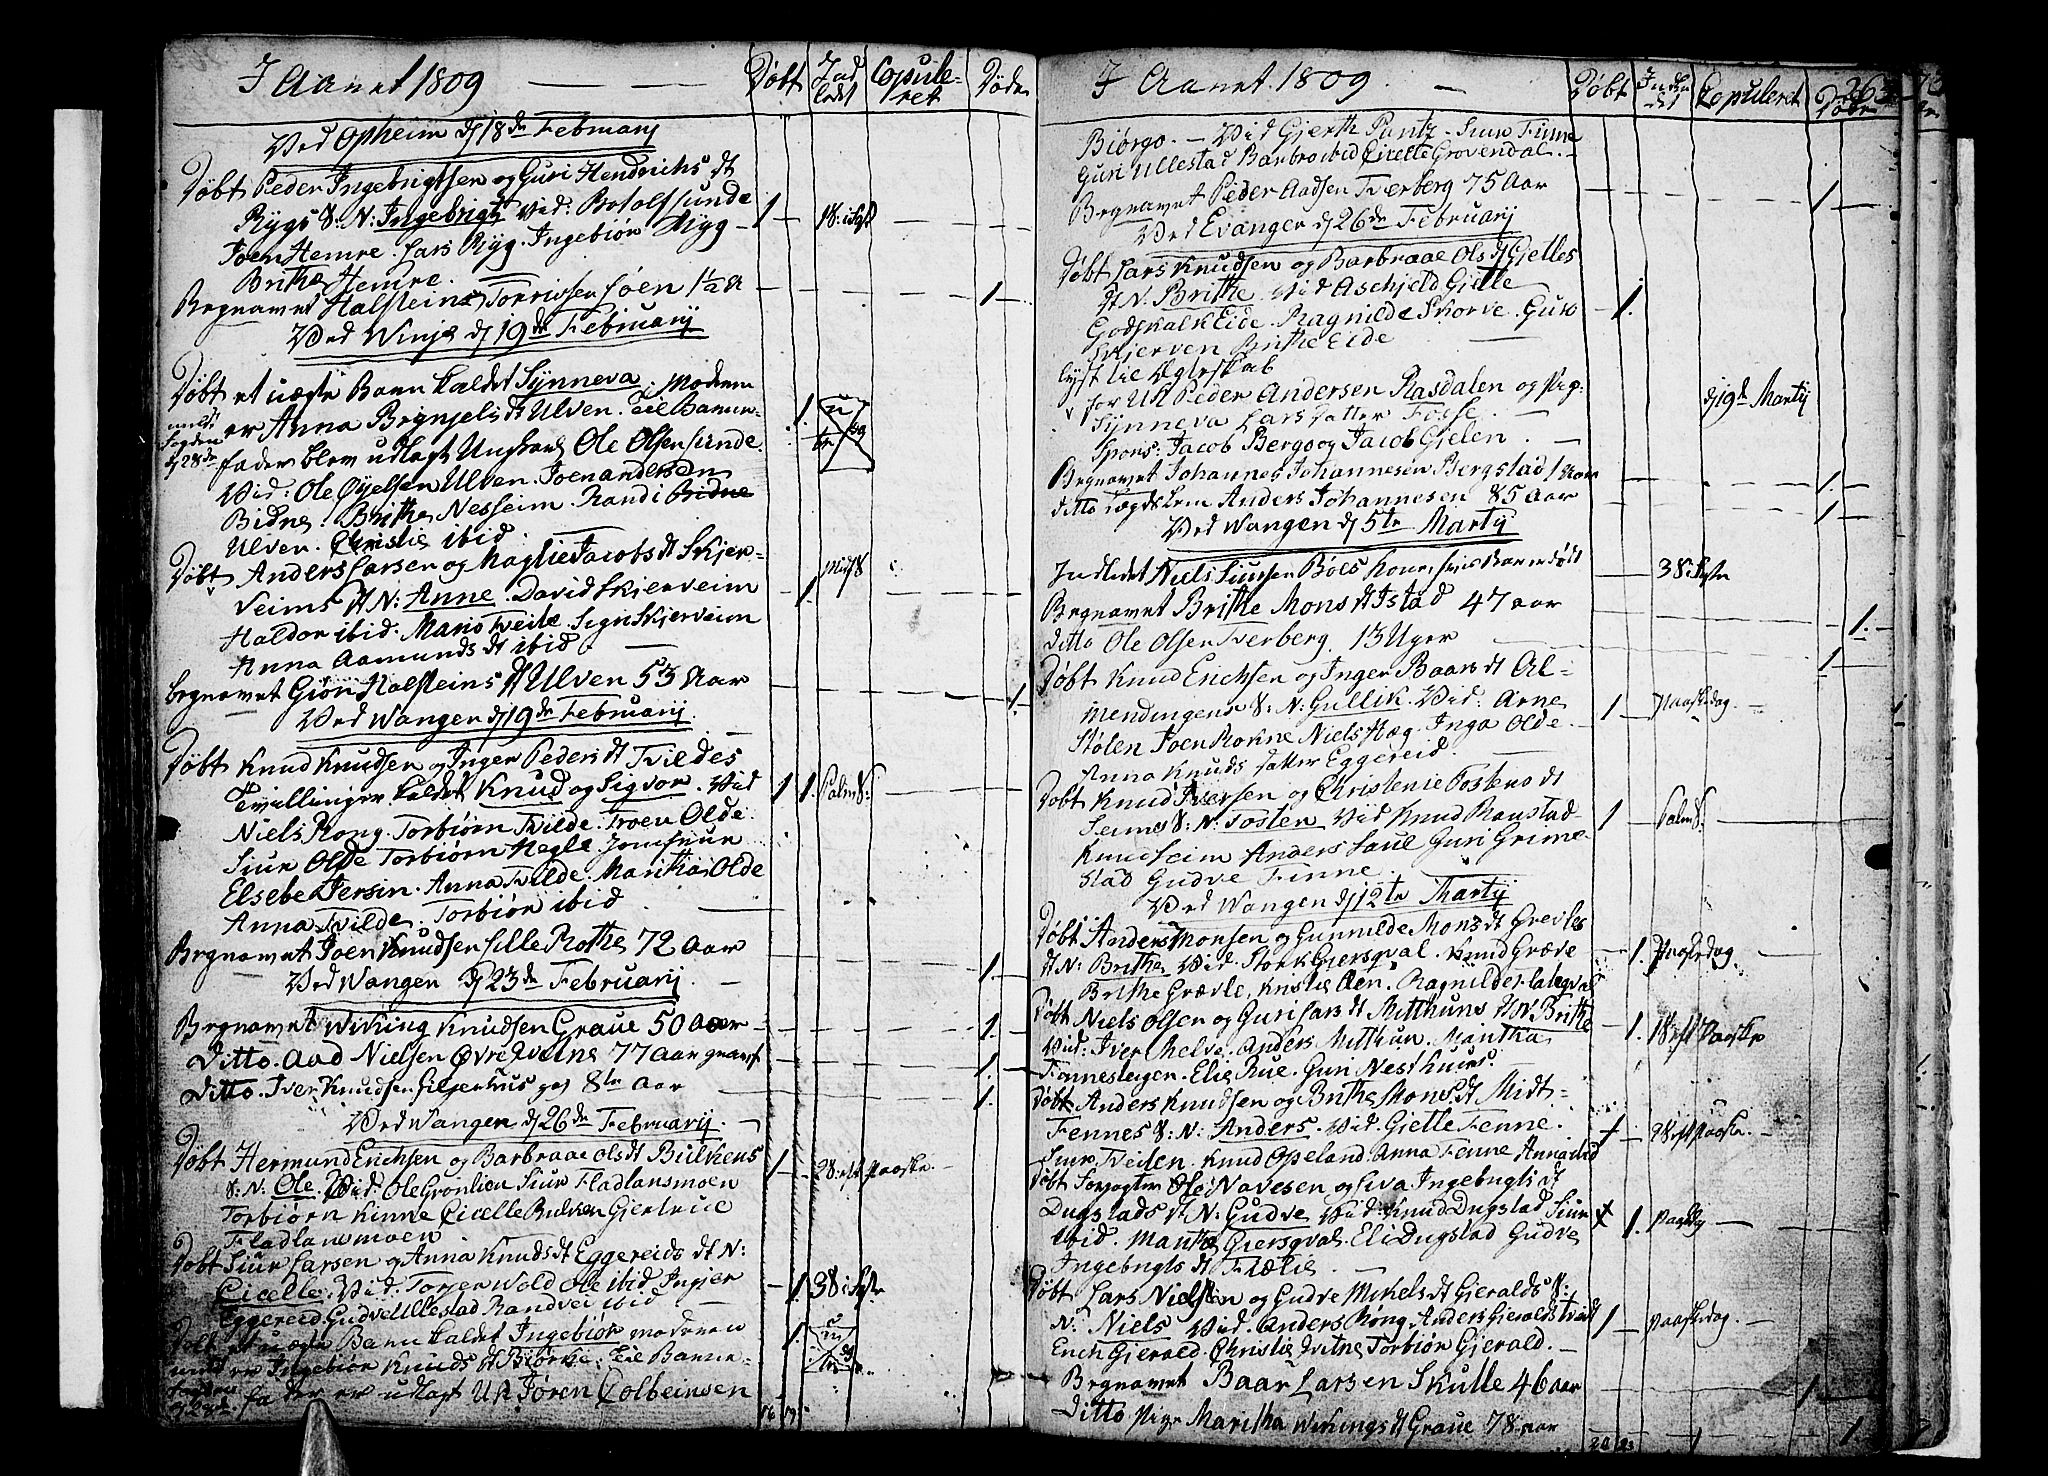 I Aanet 1809 Døbt Indledt Copuleret Døde
Ved Opheim d 18de Februarij
Døbt Peder Ingebrigtsen og Guri Hendrichs dt
Rygs S: N: Ingebrigt Vid: Botolf Sunde 1
Joen Hemre. Lars Ryg. Ingebiør Ryg
Brithe Hemre.
Begravet Halstein Torrissen søen 1½ A 1
Ved Winje d 19de Februarij
Døbt et uægte Barn kaldet Synneva, Moderen
er Anna Brynjels dt Ulven. Til Barne-
fader blev udlagt Ungkarl Ole Olsen Sunde
Vid: Ole Øyelsen Ulven. Joen andersen
Bidne. Brithe Nesseim. Randi
Ulven. Christie ibid.
Døbt Anders Larsen og Maglie Jacobs dt Skjer-
veims dt N: Anne. David Skierveim 1
Haldor ibid. Maris Tveite. Signi Skjerveim
Anna Aamunds dt ibid
begravet Giøri Halsteins dt Ulven 53 Aar 1
Ved Wangen d 19de Februarij
Døbt Knud Knudsen og Inger Peders dt Tvildes
Tvillinger kaldet Knud og Sigvor. Vid 1 1 Palm S:
Niels Rong. Torbiørn Tvilde. Troen Olde.
Siur Olde Torbiørn Hegle Jomfrue
Elsebe Jersin. Anna Tvilde. Maritha Olde
Anna Tvilde. Torbiør ibid
Begravet Joen Knudsen Lille Rothe 72 Aar 1
Ved Wangen d 23de Februarij
Begravet Wiking Knudsen Graue 50 Aar 1
Ditto. Aad Nielsen Øvre Qvitne 77 Aar 1
Ditto. Iver Knudsen 8te Aar 1
Ved Wangen d 26de Februarij
Døbt Hermund Erichsen og Barbraae Ols dt Bulkens 1
S: N: Ole. Vid: Ole Grønlien Siur Fladlansmoen
Torbiørn Kinne Cicelle Bulken Giertrue
Fladlansmoen
Døbt Siur Larsen og Anna Knuds dt Eggereids dt N:
Cicelle. Vid: Torjer Wold Ole ibid Ingier 1
Eggereid Gudve Ullestad Randvei ibid
Døbt et uægte Barn kaldet Ingebiør moderen 1
er Ingebiør Knuds dt Biørke. Til Barne-
fader er udlagt U: K: Jøren Colbeinsen
I Aanet 1809. Døbt Indledt Copuleret Døbt 263
Biørgo. Vid Gierth Pantz. Siur Finne
Guri Ullestad Barbro ibid Cicelle Grovendal.
Begravet Peder Aadsen Tverberg 75 Aar 1
Ved Evanger d 26de Februarij
Døbt Lars Knudsen og Barbraae Ols dt Gjelles
dt N: Brithe. Vid Aschjeld Gielle 1.
Godskalk Eide. Ragnilde Skorve. Guro
Skjerven Brithe Eide
lyst til Ægteskab
for U: K: Peder Andersen Rasdalen og Pig: d 19de Martij
Synneva Lars datter Fosse.
Spons: Jacob Bergo og Jacob Gielen.
Begravet Johannes Johannesen Bergstad 1 Aar 1
Ditto Anders Johannesen 85 Aar 1
Ved Wangen d 5te Martij
Indledet Niels Siursen Bøes Kone
Begravet Brithe Mons dt Istad 47 Aar 1.
Ditto Ole Olsen Tverberg 13 Uger 1
Døbt Knud Erichsen og Inger Baars dt Al-
mendingens S: N: Gullik. Vid: Arne 1 Paaskedag
Stølen Joen Rokne Niels Hæg. Inga Olde.
Anna Knuds datter Eggereid.
Døbt Knud Iversen og Christenie Tostens dt
Seimes S: N: Tosten Vid Knud Ronstad 1 Palm S:
Knud Seim Anders Saue Guri Grime-
stad Gudve Finne.
Ved Wangen d 12te Martij
Døbt Anders Monsen og Gunnilde Mons dt Grevles
dt N: Brithe. Vid. Stork Giersqval. Knud Græve 1. Paaskedag
Brithe Grævle, Ragnilde
Døbt Niels Olsen og Guri Lars dt Mitthuns dt N: Brithe 1.
Vid: Iver Melve. Anders Mitthun. Maritha
Tønnesteigen. Elie Rue. Guri Nesthuus.
Døbt Anders Knudsen og Brithe Mons dt Midt-
Fennes S: N: Anders. Vid. Gielle Fenne. 1
Siur Tveiten. Knud Opeland. Anna Fenne Anna ibid
Døbt Ole Navesen og Siva Ingebrigts dt
Dugstads dt N: Gudve Vid: Knud Dugstad Siur 1.
ibid. Maritha Giersqval. Eli Dugstad Gudve
Ingebrigts dt Flætie.
Døbt Lars Nielsen og Gudve Mikels dt Gieralds S:
N: Niels Vid. Anders Rong Anders Gieraldstveidt 1 Paaskedag.
Erich Gierald. Christie Qvitne Torbiør Gierald.
Begravet Baar Larsen Skulle 46 Aar 1
Ditto Pige Maritha Wikings dt Graue 78 Aar 1.